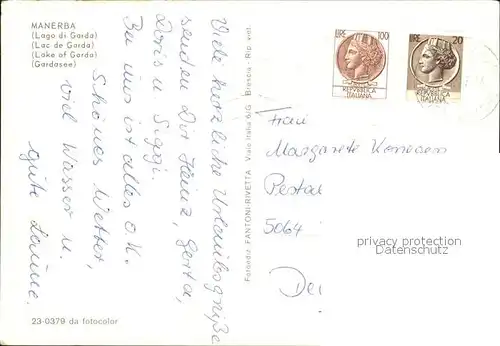 MANERBA
(Lago di Garda)
(Lac de Garda)
(Lake of Garda)
(Gardasee)
Viele herzliche Urlaubsgrüße
senden Dir Heinz, Gerta,
Doris u. Siggi.
Bei uns ist alles o.K.
Schönes Wetter,
viel Wasser u.
gute Laune.
23-0379 da fotocolor
Fotoediz. FANTONI-RIVETTA Viale Italia 6/G Brescia - Rip. viet.
LIRE 100
REPVBBLICA
ITALIANA
LIRE 20
REPVBBLICA
ITALIANA
Frau
Margarete
Pestal
5064
privacy protection
Datenschutz